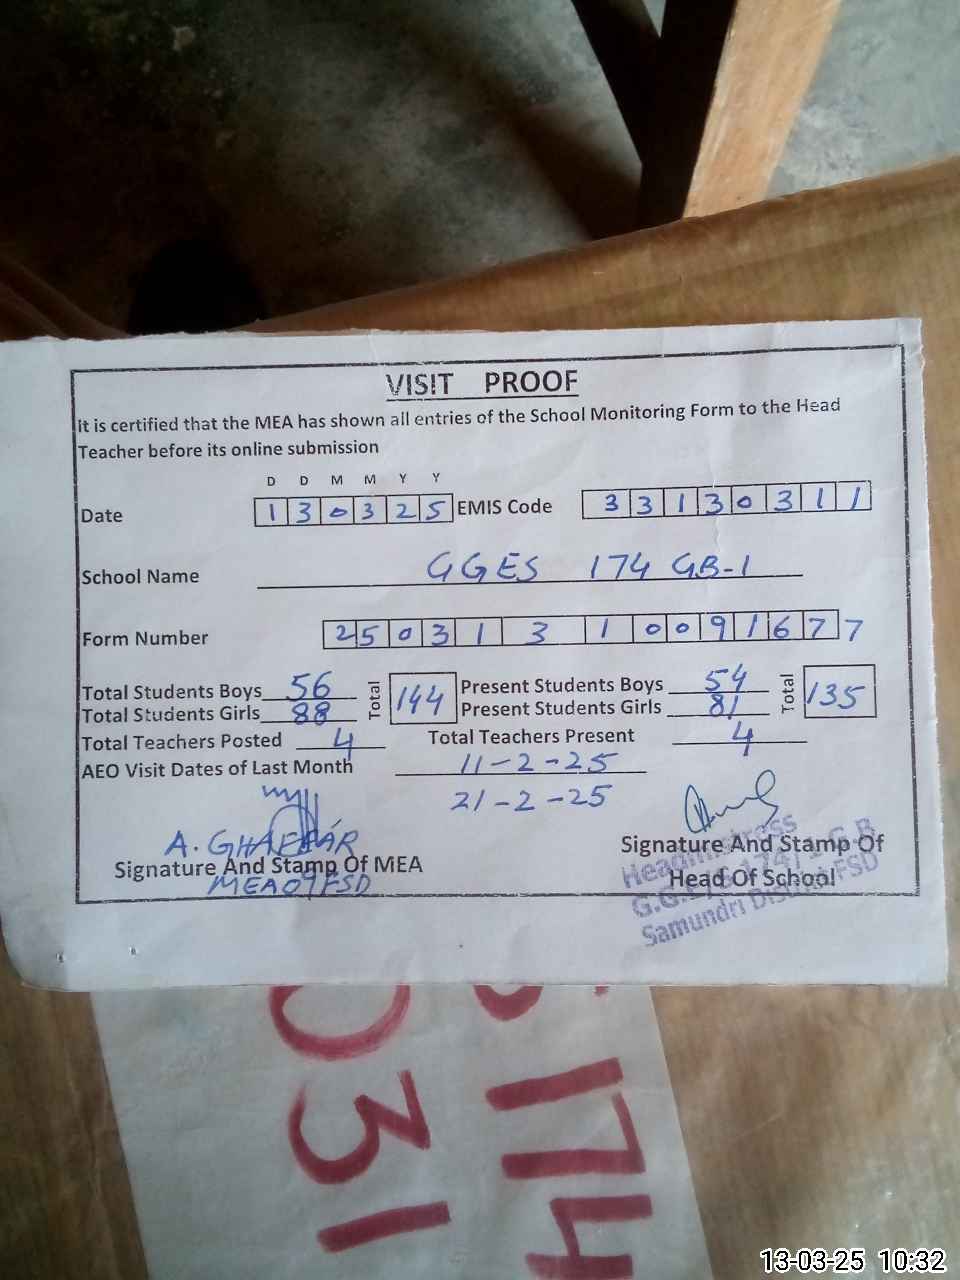 VISIT PROOF
It is certified that the MEA has shown all entries of the School Monitoring Form to the Head
Teacher before its online submission
D D M M Y Y
Date 1 3 0 3 2 5 EMIS Code 3 3 1 3 0 3 1 1
School Name GGES 174 GB-1
Form Number 2 5 0 3 1 3 1 0 0 9 1 6 7 7
Total Students Boys 56 Total 144 Present Students Boys 54 Total 135
Total Students Girls 88 Present Students Girls 81
Total Teachers Posted 4 Total Teachers Present 4
AEO Visit Dates of Last Month 11-2-25
21-2-25
A. GHAFFAR
Signature And Stamp Of MEA
MEA09FSD
Signature And Stamp Of
Head Of School
Headmistress
Samundri Distt FSD
174
031
13-03-25 10:32